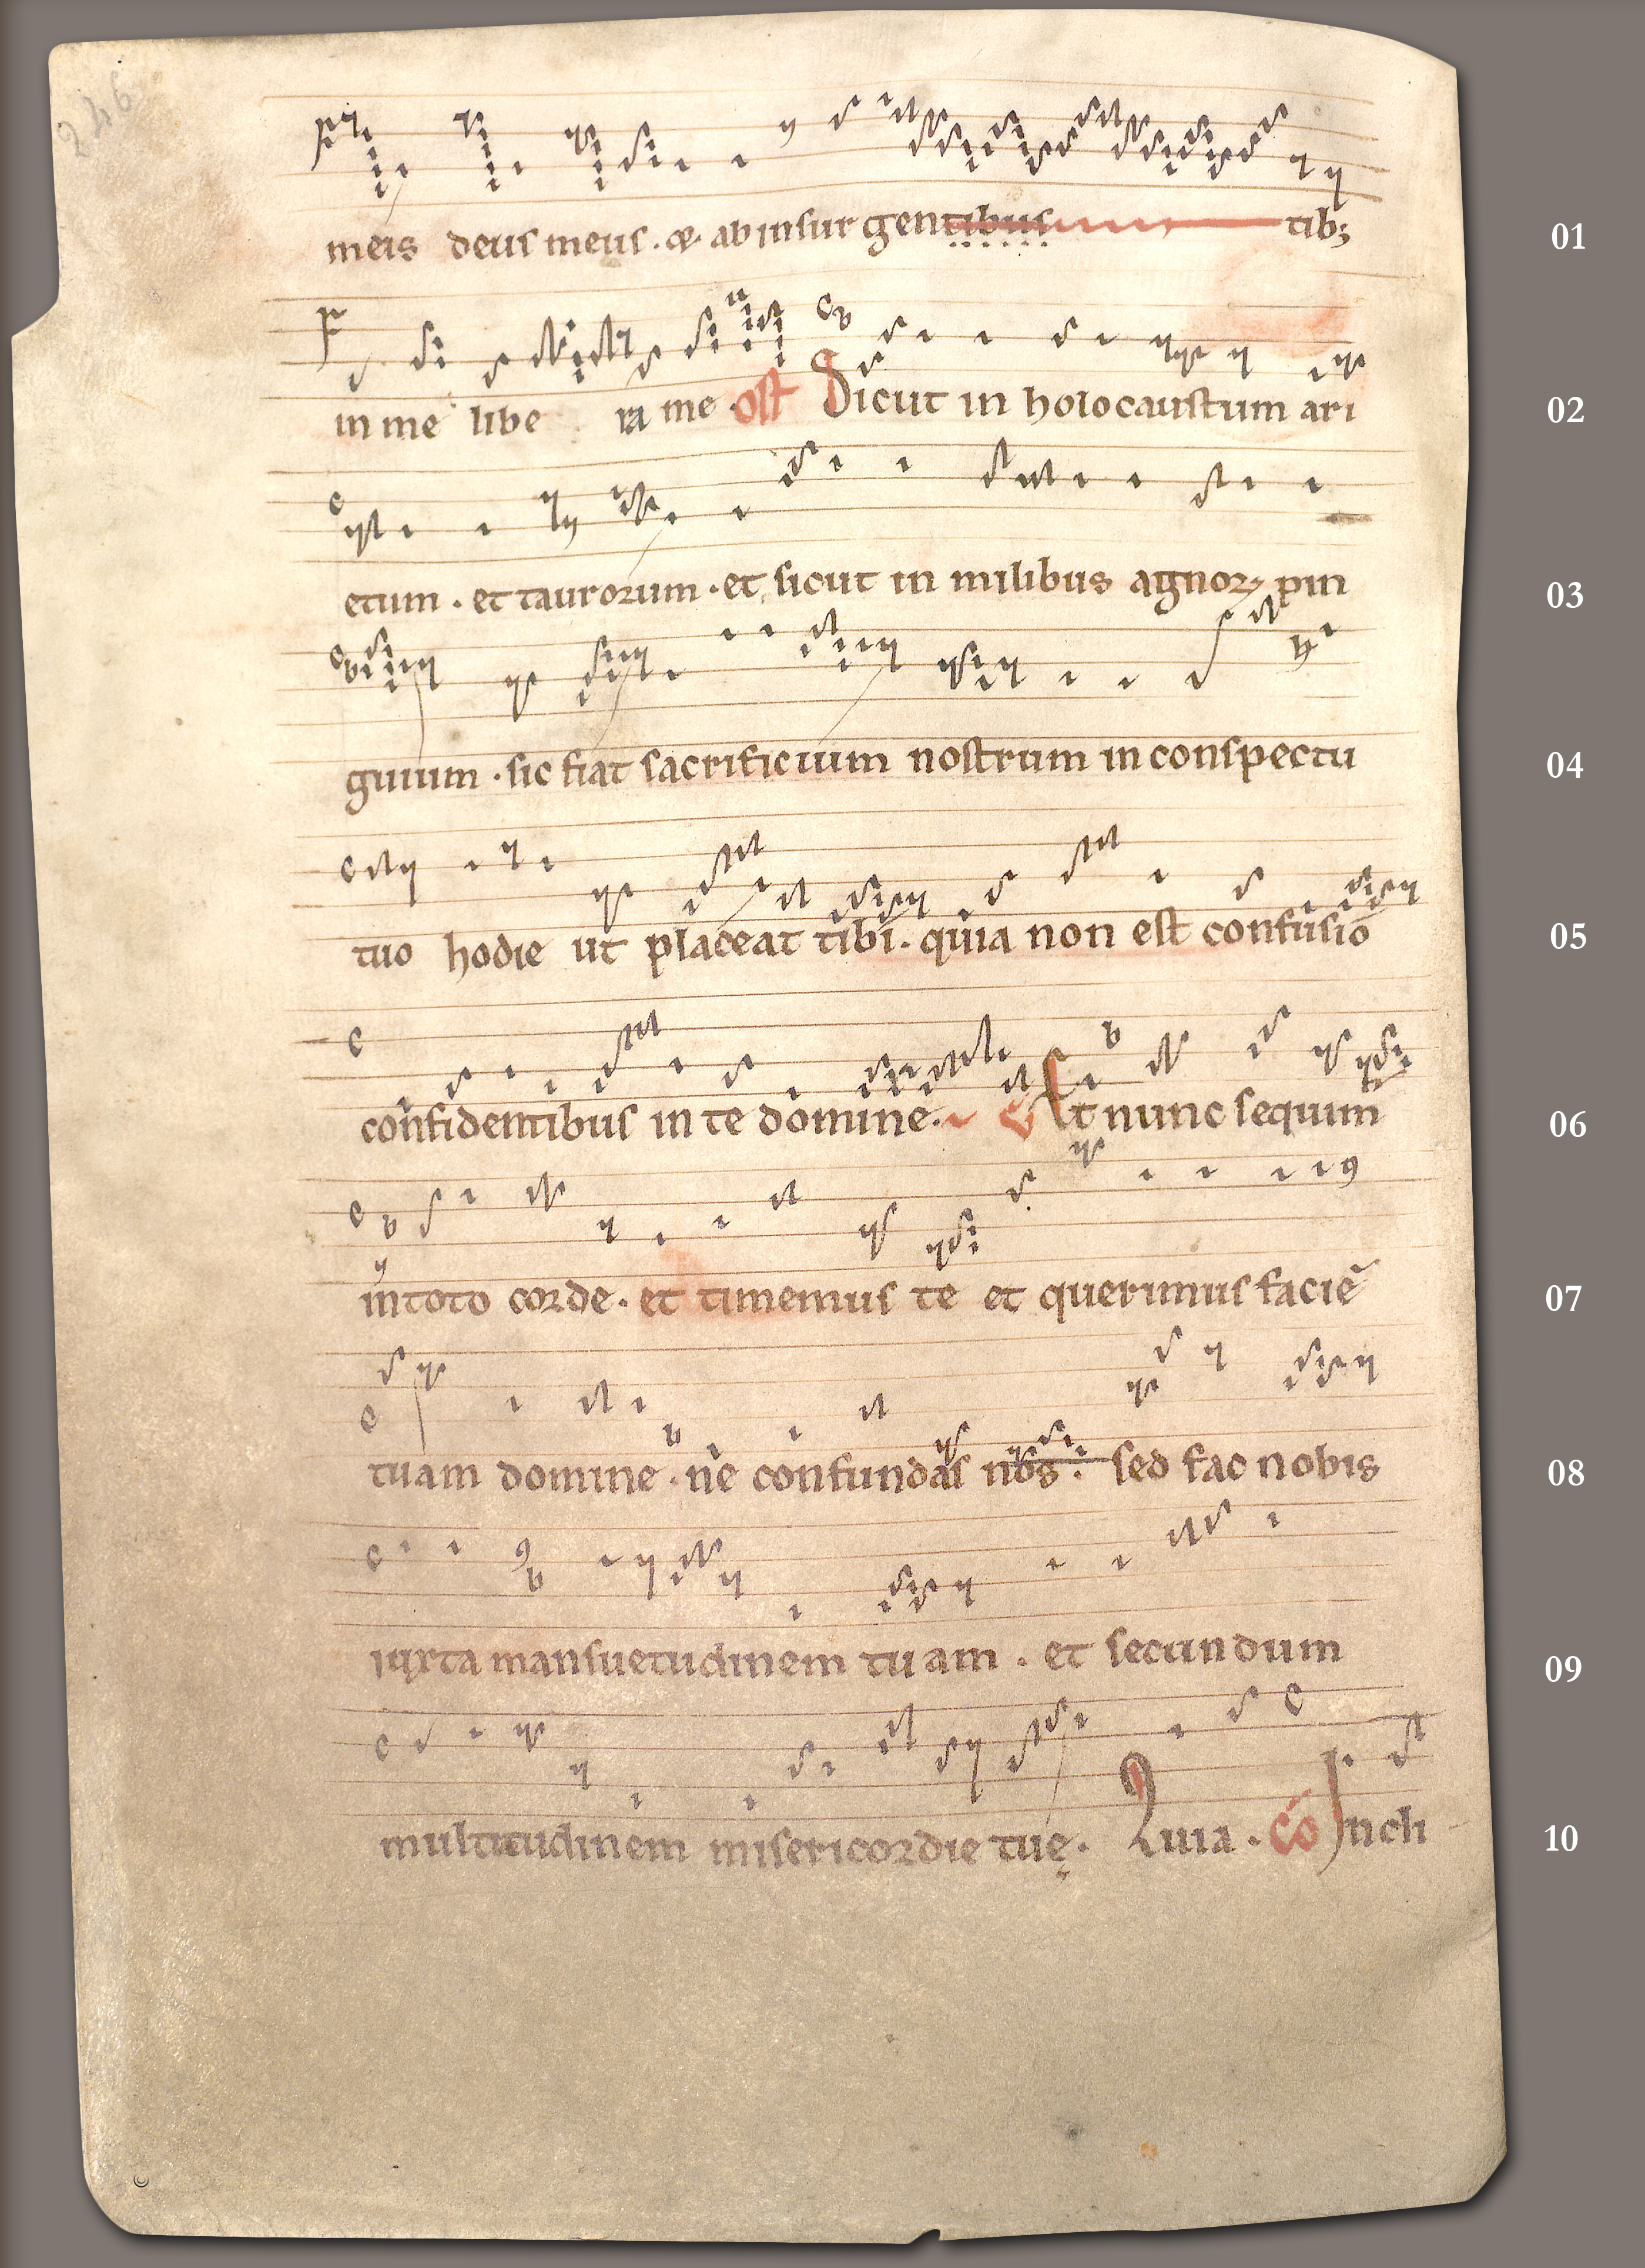 246
meis deus meus . & . ab insurgentibus tib;
01
in me libe ra me . off Sicut in holocaustum ari
02
etum . et taurorum . et sicut in milibus agnoꝝ pin
03
guium . sic fiat sacrificium nostrum in conspectu
04
tuo hodie ut placeat tibi . quia non est confusio
05
confidentibus in te domine . Et nunc sequim
06
in toto corde . et timemus te et querimus faciē
07
tuam domine . ne confundas nos . sed fac nobis
08
iuxta mansuetudinem tuam . et secundum
09
multitudinem misericordie tuę . Quia . cō Incli
10